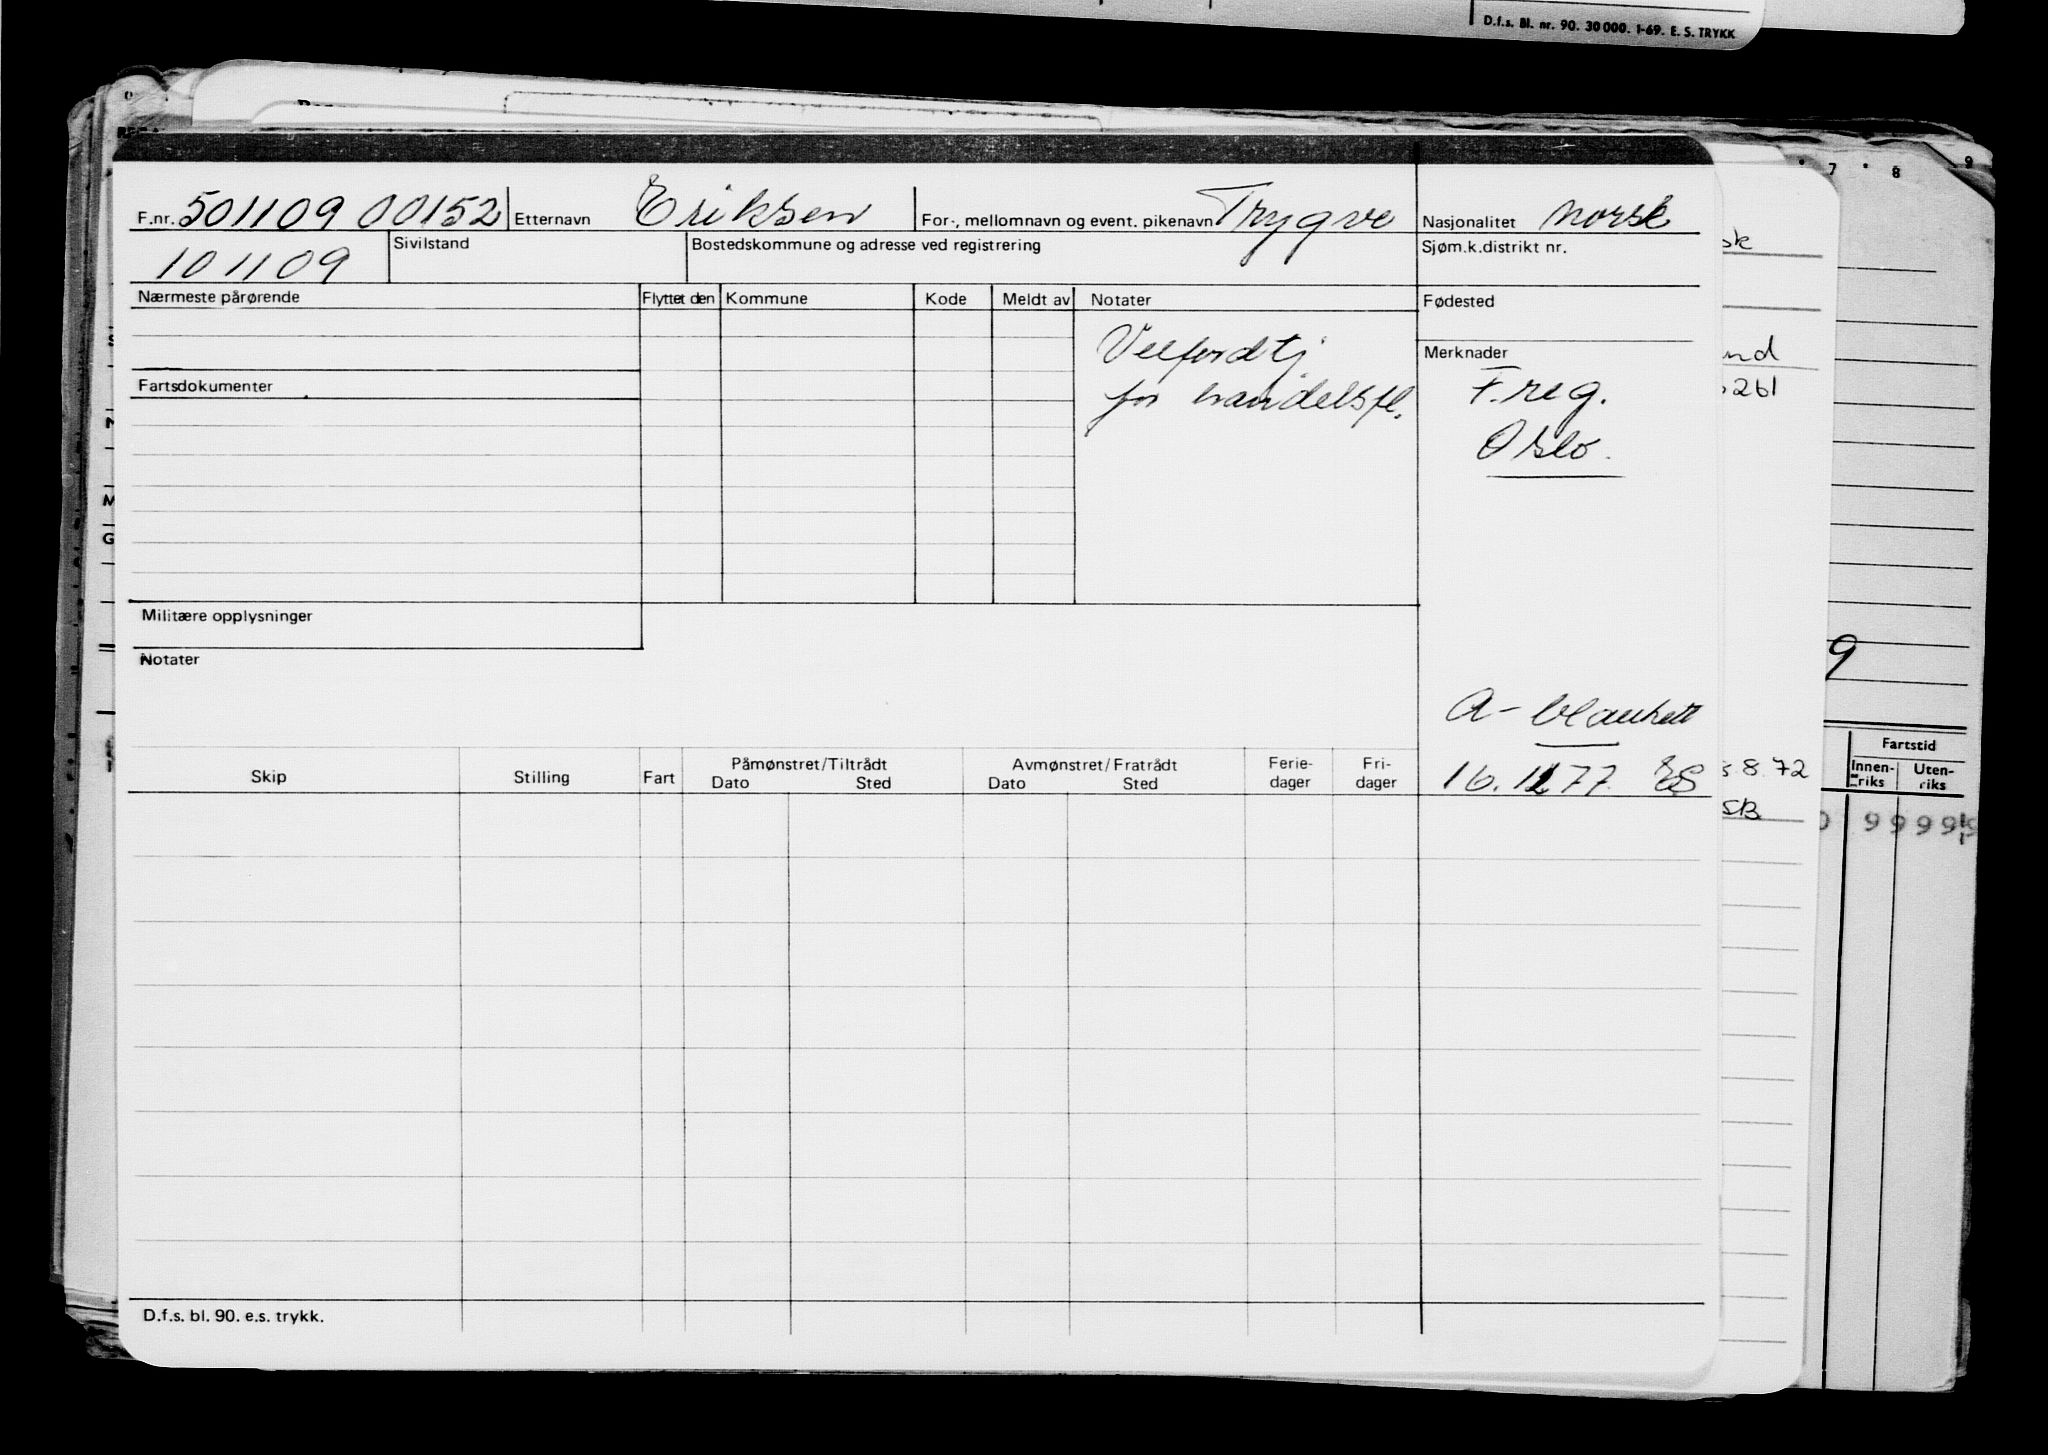 D.f.s. Bl. nr. 90. 30 000. 1-69. E. S. TRYKK
7 8 9
F.nr. 501109 00152 Etternavn Eriksen For-, mellomnavn og event. pikenavn Trygve Nasjonalitet norsk
101109 Sivilstand Bostedskommune og adresse ved registrering Sjøm.k.distrikt nr.
Nærmeste pårørende Flyttet den Kommune Kode Meldt av Notater Fødested
Velferdtj
for handelsfl.
Merknader
F.reg.
Oslo.
Fartsdokumenter
261
Militære opplysninger
Notater
9
A-blankett
16.12 77 ES
Skip Stilling Fart Påmønstret/Tiltrådt Avmønstret/Fratrådt Ferie- Fri-
Dato Sted Dato Sted dager dager
8.72
SB
Fartstid
Innen- Uten-
riks riks
9 9 9 9
D.f.s. bl. 90. e.s. trykk.